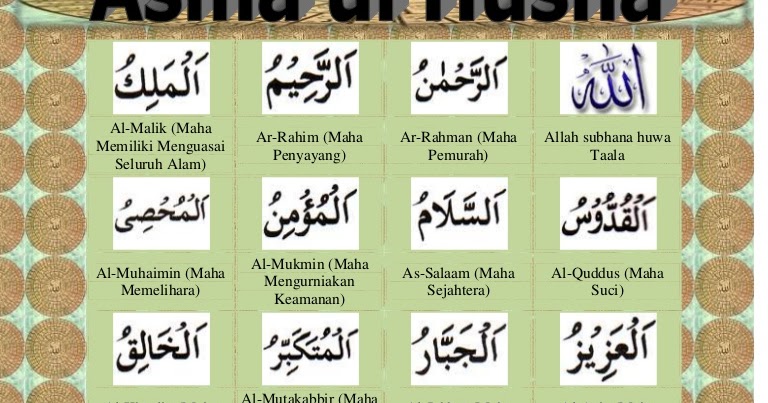 Asma ul Husna
الله
Allah subhana huwa
Taala
اَلرَّحْمٰنُ
Ar-Rahman (Maha
Pemurah)
اَلرَّحِيْمُ
Ar-Rahim (Maha
Penyayang)
اَلْمَلِكُ
Al-Malik (Maha
Memiliki Menguasai
Seluruh Alam)
اَلْقُدُّوْسُ
Al-Quddus (Maha
Suci)
اَلسَّلَامُ
As-Salaam (Maha
Sejahtera)
اَلْمُؤْمِنُ
Al-Mukmin (Maha
Mengurniakan
Keamanan)
اَلْمُحْصِىُ
Al-Muhaimin (Maha
Memelihara)
اَلْعَزِيْزُ
اَلْجَبَّارُ
اَلْمُتَكَبِّرُ
Al-Mutakabbir (Maha
اَلْخَالِقُ